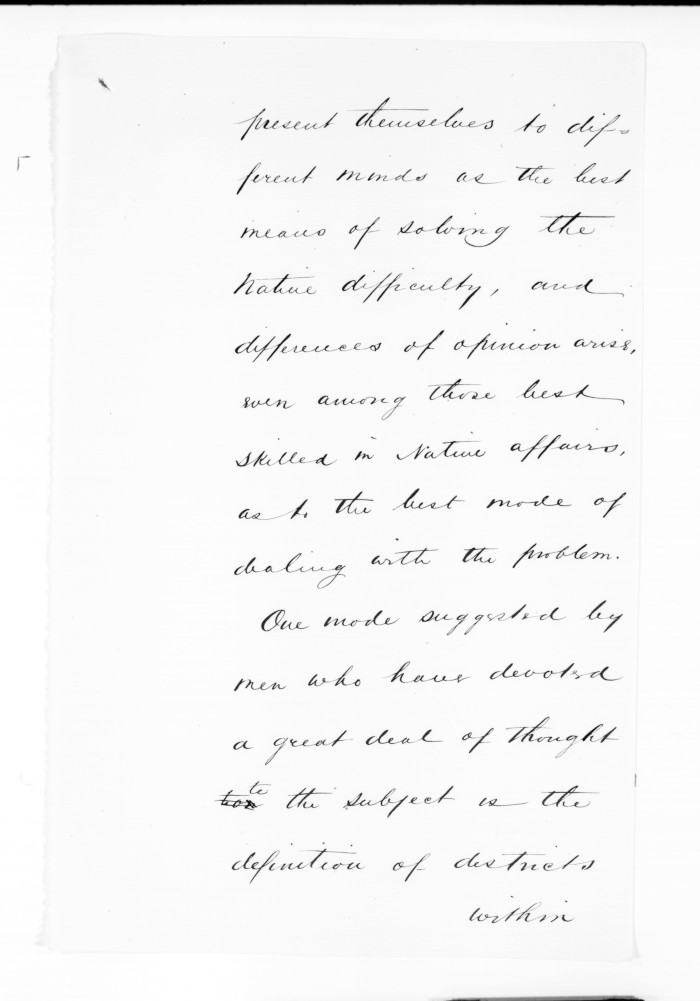 present themselves to dif=
ferent minds as the best
means of solving the
Native difficulty, and
differences of opinion arise,
even among those best
skilled in Native affairs,
as to the best mode of
dealing with the problem.
One mode suggested by
men who have devoted
a great deal of thought
to
the subject is the
definition of districts
within